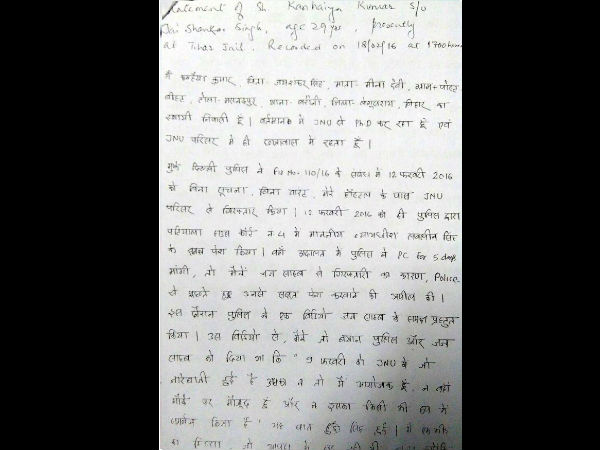 Statement of Sh. Kanhaiya Kumar S/o
Jai Shankar Singh, age 29 yrs, presently
at Tihar Jail. Recorded on 18/02/16 at 1700 hours
मैं कन्हैया कुमार, पिता- जयशंकर सिंह, माता- मीना देवी, ग्राम+पोस्ट-
बीहट, टोला- मसनदपुर, थाना- बरौनी, जिला- बेगूसराय, बिहार का
स्थायी निवासी हूँ। वर्तमान में JNU से PhD कर रहा हूँ एवं
JNU परिसर में ही छात्रावास में रहता हूँ।
मुझे दिल्ली पुलिस ने FIR No. 110/16 के संबंध में 12 फरवरी 2016
को बिना सूचना, बिना वारंट, मेरे हॉस्टल के पास JNU
परिसर से गिरफ्तार किया। 12 फरवरी 2016 को ही पुलिस द्वारा
पटियाला हाउस कोर्ट न 4 में माननीय न्यायाधीश लवलीन सिंह
के समक्ष पेश किया। वहाँ अदालत में पुलिस ने PC for 5 days
मांगी, तो मैंने जज साहब से गिरफ्तारी का कारण, Police
से पूछते हुए उनसे सबूत पेश करवाने की अपील की।
इस दौरान पुलिस ने एक विडियो जज साहब के समक्ष प्रस्तुत
किया। उस विडियो से, मैंने जो बयान पुलिस और जज
साहब को दिया था कि " 9 फरवरी को JNU में जो
नारेबाजी हुई है उसका न तो मैं आयोजक हूँ, न वहाँ
मौके पर मौजूद हूँ और न इसका किसी भी रूप में
समर्थन किया है" यह बात